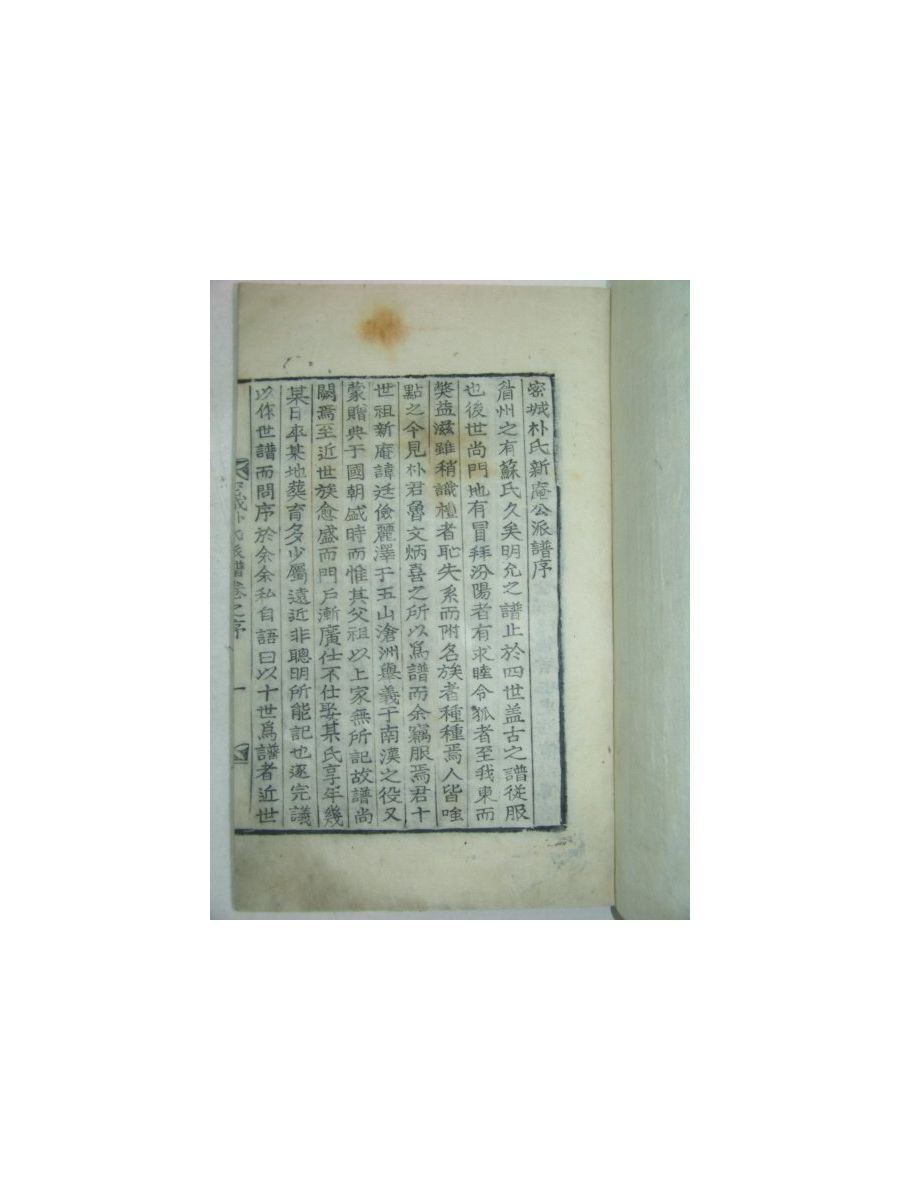 密城朴氏新庵公派譜序
眉州之有蘇氏久矣明允之譜止於四世盖古之譜從服
也後世尚門地有冒拜汾陽者有求睦令狐者至我東而
獘益滋雖稍識禮者恥失系而附名族者種種焉人皆唾
點之今見朴君魯文炳喜之所以爲譜而余竊服焉君十
世祖新庵諱廷儉麗澤于五山滄洲擧義于南漢之役又
蒙贈典于國朝盛時而惟其父祖以上家無所記故譜尚
闕焉至近世族愈盛而門戶漸廣仕不仕娶某氏享年幾
某日卒某地葬育多少屬遠近非聰明所能記也逐完議
以作世譜而問序於余余私自語曰以十世爲譜者近世
密城朴氏派譜卷之序 一